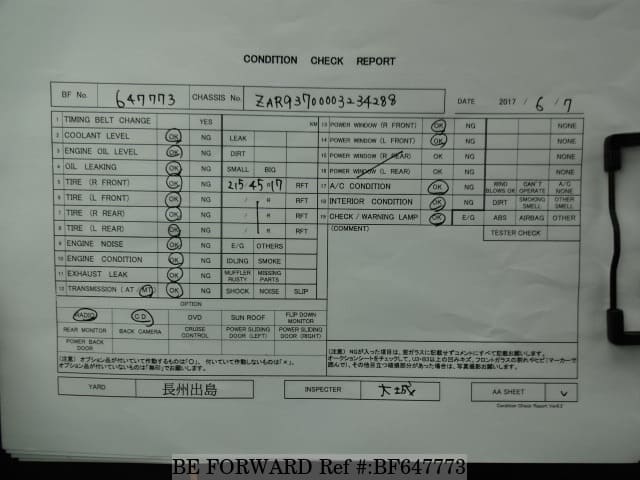 CONDITION CHECK REPORT
BF No. 647773 CHASSIS No. ZAR93700003234288 DATE 2017 / 6 / 7
1 TIMING BELT CHANGE YES KM
2 COOLANT LEVEL OK NG LEAK
3 ENGINE OIL LEVEL OK NG DIRT
4 OIL LEAKING OK NG SMALL BIG
5 TIRE (R FRONT) OK NG 215/45R17 RFT
6 TIRE (L FRONT) OK NG / R RFT
7 TIRE (R REAR) OK NG / R RFT
8 TIRE (L REAR) OK NG / R RFT
9 ENGINE NOISE OK NG E/G OTHERS
10 ENGINE CONDITION OK NG IDLING SMOKE
11 EXHAUST LEAK OK NG MUFFLER RUSTY MISSING PARTS
12 TRANSMISSION (AT / MT) OK NG SHOCK NOISE SLIP
13 POWER WINDOW (R FRONT) OK NG NONE
14 POWER WINDOW (L FRONT) OK NG NONE
15 POWER WINDOW (R REAR) OK NG NONE
16 POWER WINDOW (L REAR) OK NG NONE
17 A/C CONDITION OK NG WIND BLOWS OK CAN'T OPERATE A/C NONE
18 INTERIOR CONDITION OK NG DIRT SMOKING SMELL OTHER SMELL
19 CHECK / WARNING LAMP OK E/G ABS AIRBAG OTHER
(COMMENT) TESTER CHECK
OPTION
RADIO CD DVD SUN ROOF FLIP DOWN MONITOR
REAR MONITOR BACK CAMERA CRUISE CONTROL POWER SLIDING DOOR (LEFT) POWER SLIDING DOOR (RIGHT)
POWER BACK DOOR
(注意) オプション品が付いていて作動するものは「○」、付いていて作動しないものは「×」、
オプション品が付いていないものは「無印」でお願いします。
(注意) NGが入った項目は、窓ガラスに記載せずコメントにすべて記載お願いします。
オークションシートをチェックして、U3・B3以上の凹みキズ、フロントガラスの割れやヒビ(マーカーで
囲んで)、その他目立つ破損部分があった場合は、写真撮影お願いします。
YARD 長州出島 INSPECTER AA SHEET ✓
Condition Check Report Ver6.2
BE FORWARD Ref #:BF647773